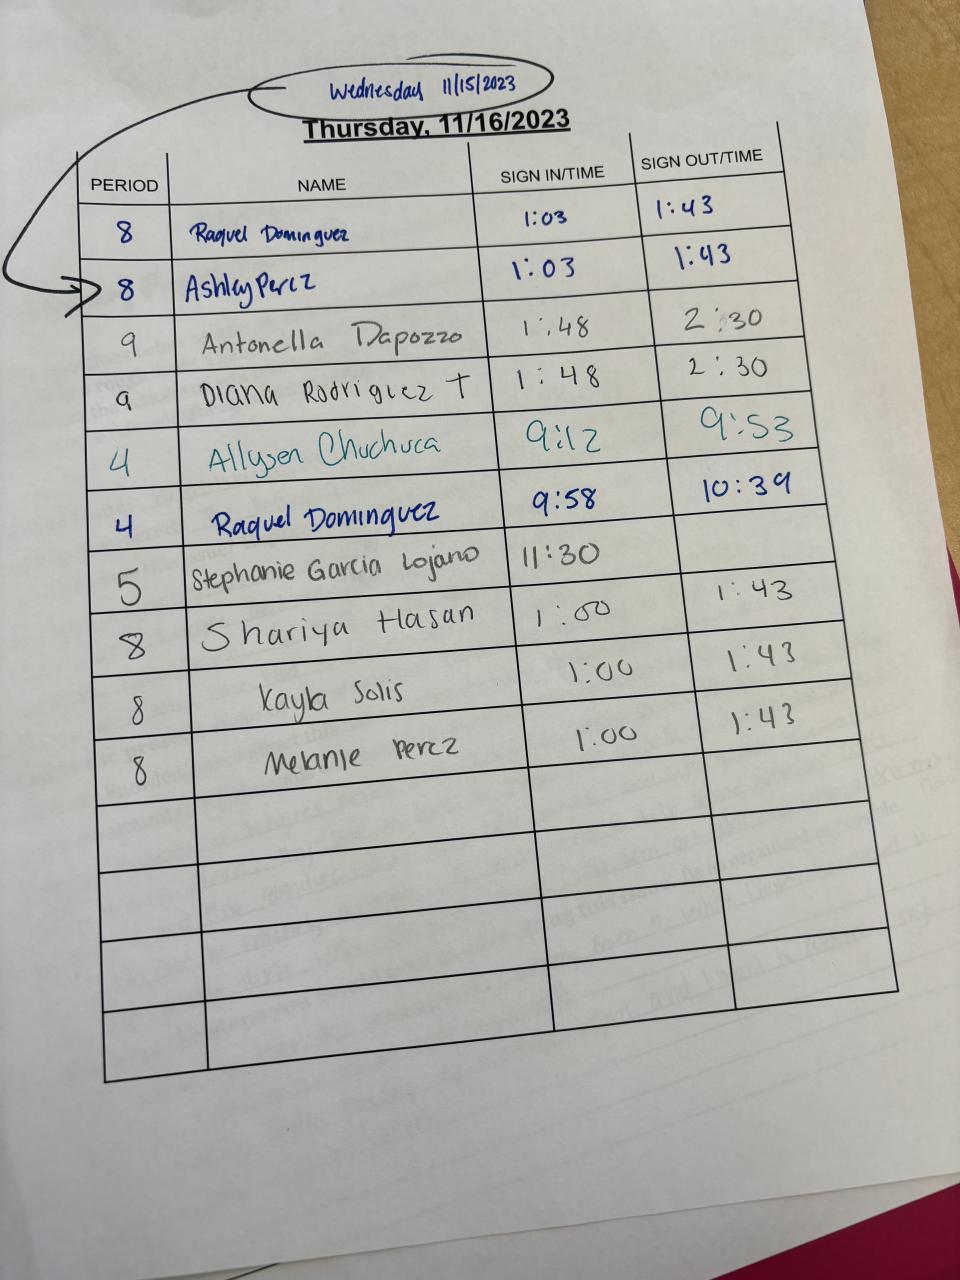 Wednesday 11/15/2023
Thursday, 11/16/2023
PERIOD NAME SIGN IN/TIME SIGN OUT/TIME
8 Raquel Dominguez 1:03 1:43
8 Ashley Perez 1:03 1:43
9 Antonella Dapozzo 1:48 2:30
9 Diana Rodriguez T 1:48 2:30
4 Allysen Chuchuca 9:12 9:53
4 Raquel Dominguez 9:58 10:39
5 Stephanie Garcia Lojano 11:30
8 Shariya Hasan 1:00 1:43
8 Kayla Solis 1:00 1:43
8 Melanie Perez 1:00 1:43